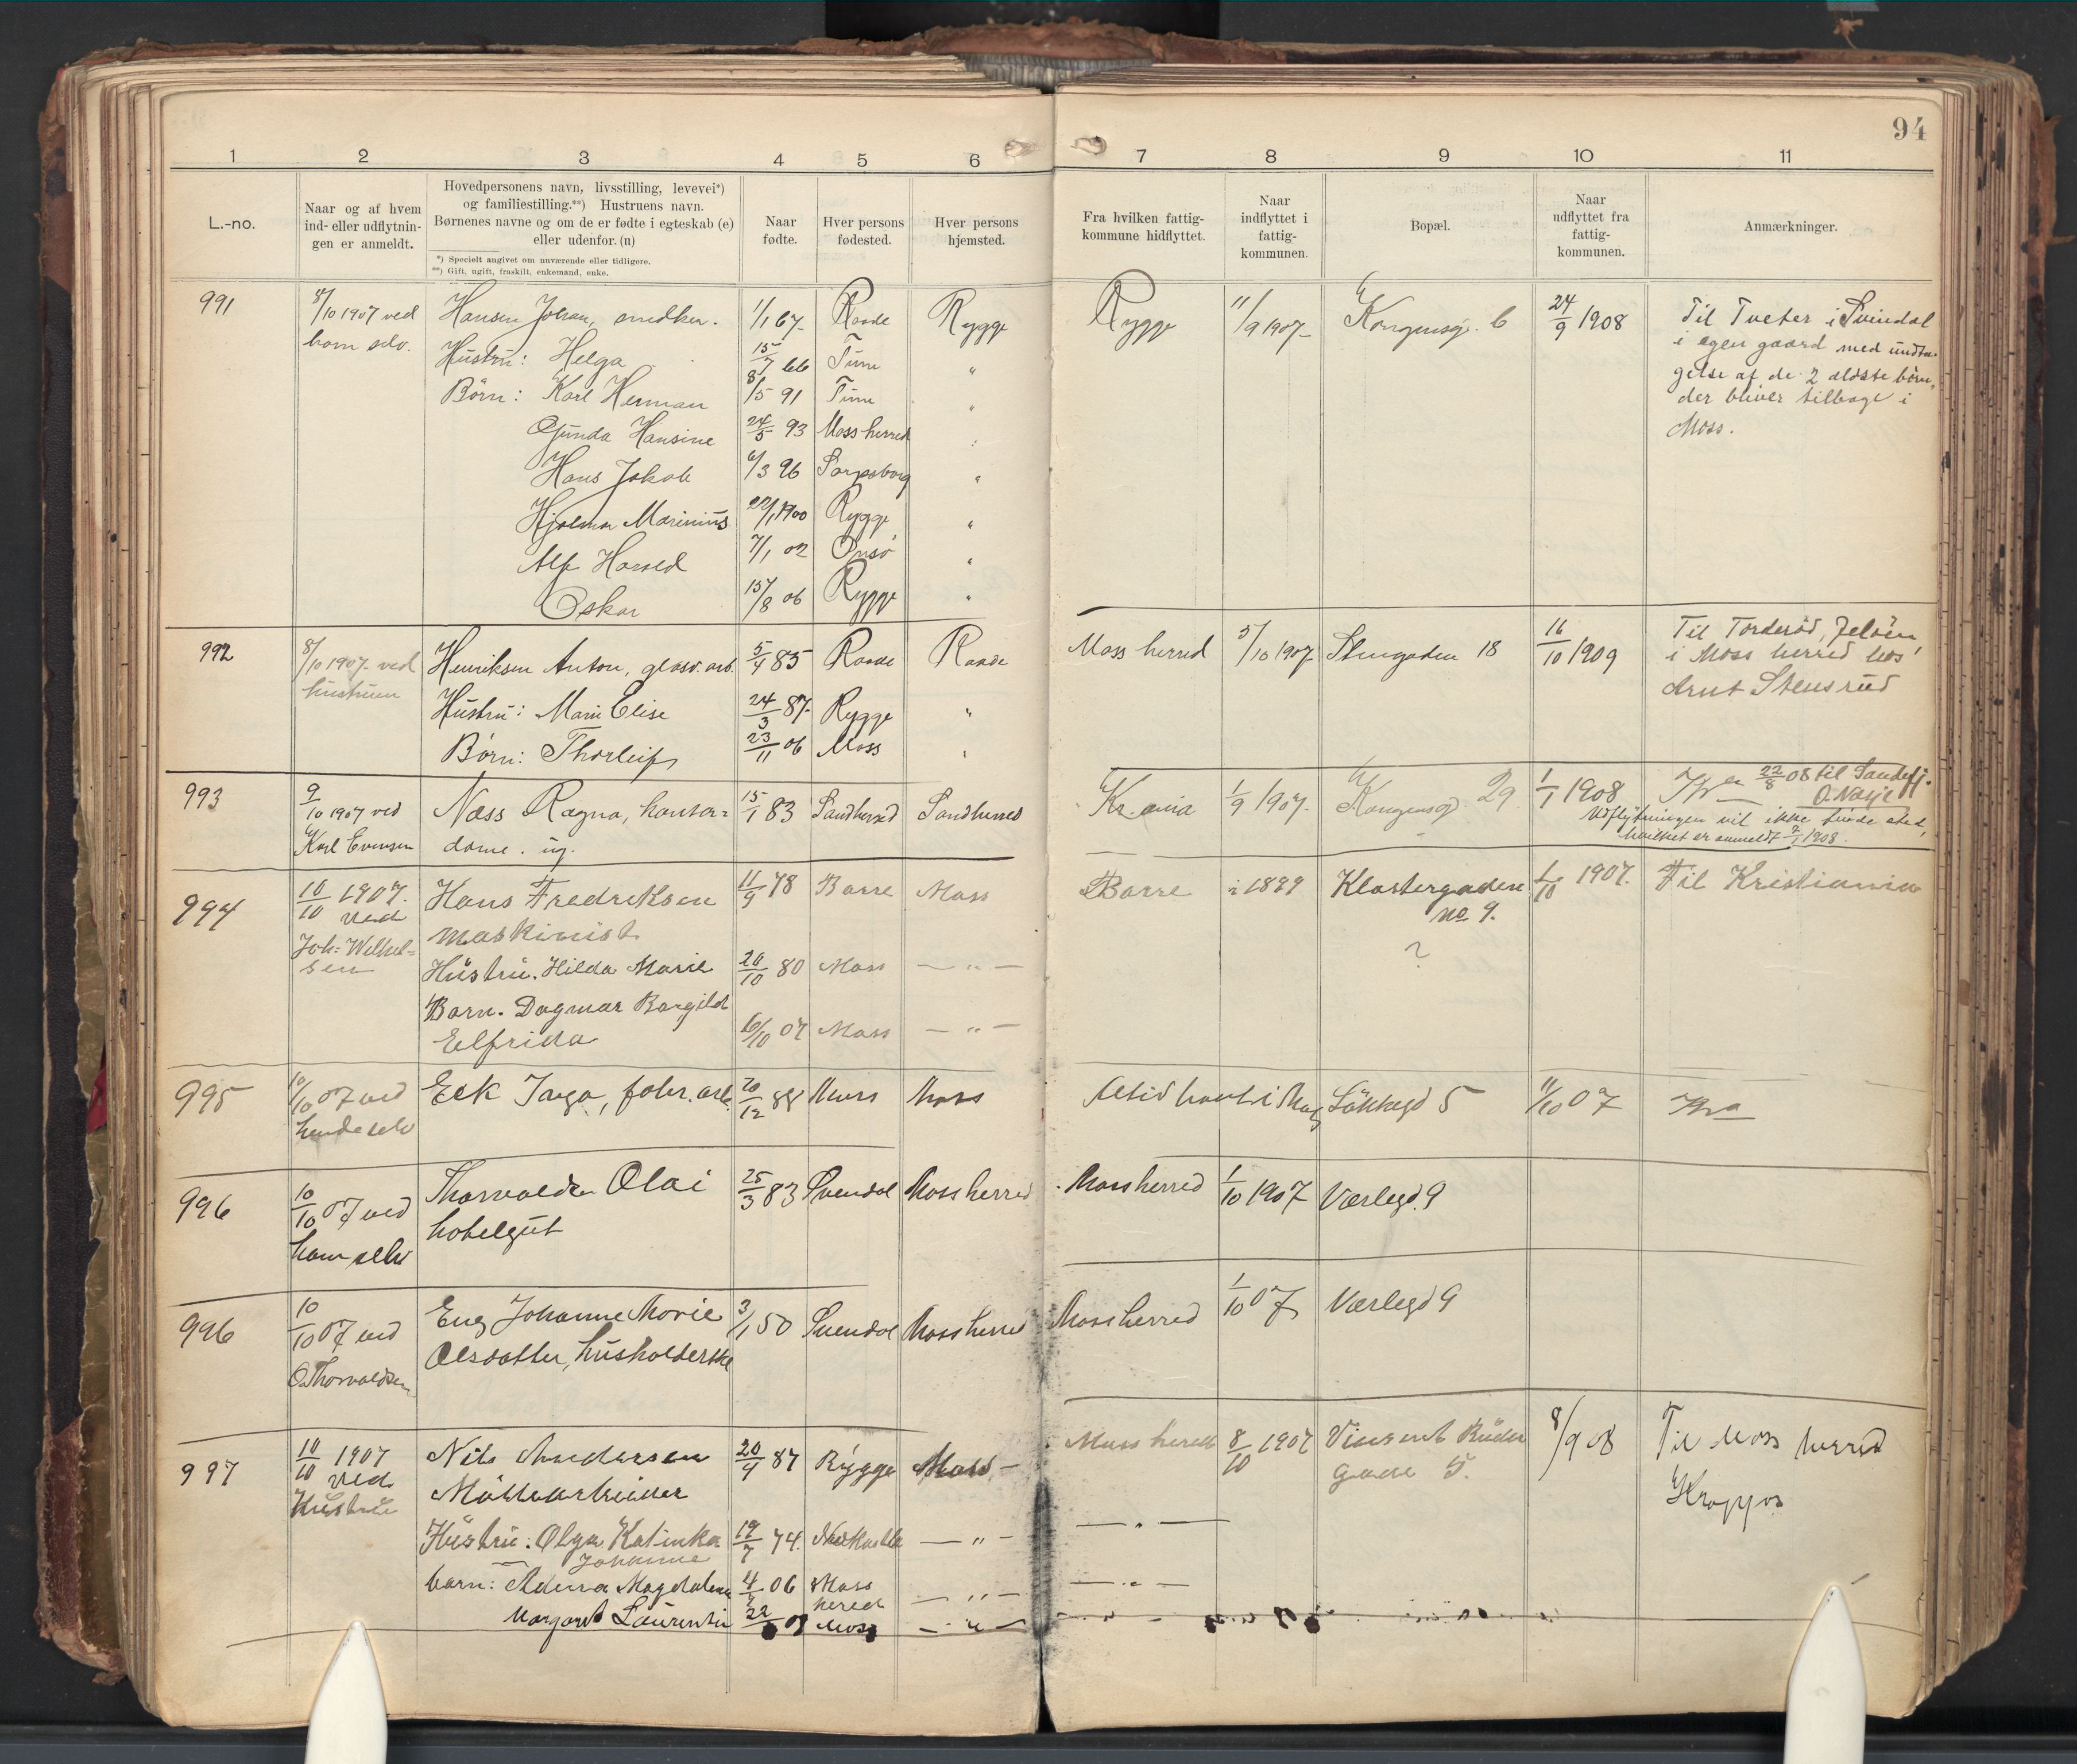 94
1 2 3 4 5 6 7 8 9 10 11
L.-no.
Naar og af hvem
ind- eller udflytnin-
gen er anmeldt.
Hovedpersonens navn, livsstilling, levevei*)
og familiestilling.**) Hustruens navn.
Børnenes navne og om de er fødte i egteskab (e)
eller udenfor. (u)
*) Specielt angivet om nuværende eller tidligere.
**) Gift, ugift, fraskilt, enkemand, enke.
Naar
fødte.
Hver persons
fødested.
Hver persons
hjemsted.
Fra hvilken fattig-
kommune hidflyttet.
Naar
indflyttet i
fattig-
kommunen.
Bopæl.
Naar
udflyttet fra
fattig-
kommunen.
Anmærkninger.
991 8/10 1907 ved Hansen Johan, snedker. 1/1 67 Raade Rygge Rygge 11/9 1907 Kongensg. 6 24/9 1908 Til Tveter i Svindal
ham selv. Hustru: Helga 15/7 66 Tune " i egen gaard med undta-
Børn: Karl Herman 8/5 91 Tune " gelse af de 2 ældste børn,
Gunda Hansine 24/5 93 Moss herred " der bliver tilbage i
Hans Jakob 6/3 96 Sarpsborg " Moss.
Hjalmar Marinius 1900 Rygge "
Alf Harald 7/1 02 Onsø "
Oskar 15/8 06 Rygge "
992 8/10 1907 ved Henriksen Anton, glasv. arb. 5/4 85 Raade Raade Moss herred 5/10 1907 Stengaden 18 16/10 1909 Til Torderød, Jeløen,
hustruen i Moss herred hos
Hustru: Marie Elise 24/3 87 Rygge " Arnt Stensrud
Børn: Thorleif 23/11 06 Moss "
993 9/10 1907 ved Næss Ragna, kontor- 15/1 83 Sandherred Sandherred Kr.ania 1/9 1907 Kongensgd 29 1/1 1908 22/8 08 til Sandefj.
Karl Evensen dame. ug. Udflytningen vil ikke finde sted,
hvilket er anmeldt 1908.
994 10/10 1907. Hans Fredreksen 11/9 78 Borre Moss Borre i 1899 Klostergaden 1907. Til Kristiania
ved Maskinist no 9.
Joh: Wilhel-
sen Hustru. Hilda Marie 20/10 80 Moss — " — ?
Barn. Dagmar Borgild
Elfrida 6/10 07 Moss — " —
995 10/10 07 ved Eek Inga, fabr. arb. 20/12 88 Moss Moss Altid boet i Moss Løkkegd 5 11/10 07 Kra
hende selv
996 10/10 07 ved Thorvaldsen Olai 25/3 83 Svendal Moss herred Moss herred 1/10 1907 Værlegd. 9
ham selv hotelgut
996 10/10 07 ved Eng Johanne Marie 3/1 50 Svendal Moss herred Moss herred 1/10 07 Værlegd 9
O. Thorvaldsen Olsdatter, husholderske
997 10/10 1907 Nils Andersen 20/4 87 Rygge Moss Moss herred 8/10 1907 Vincent Buder 8/9 08 Til Moss herred
ved Møllearbeider gade 5. Krappos
Hustru
Hustru: Olga Katinka 19/7 74. — " — — " —
Johanne
barn: Magdalena 06 Moss — " — — " —
herred
Margaret Laurentin Moss — " —